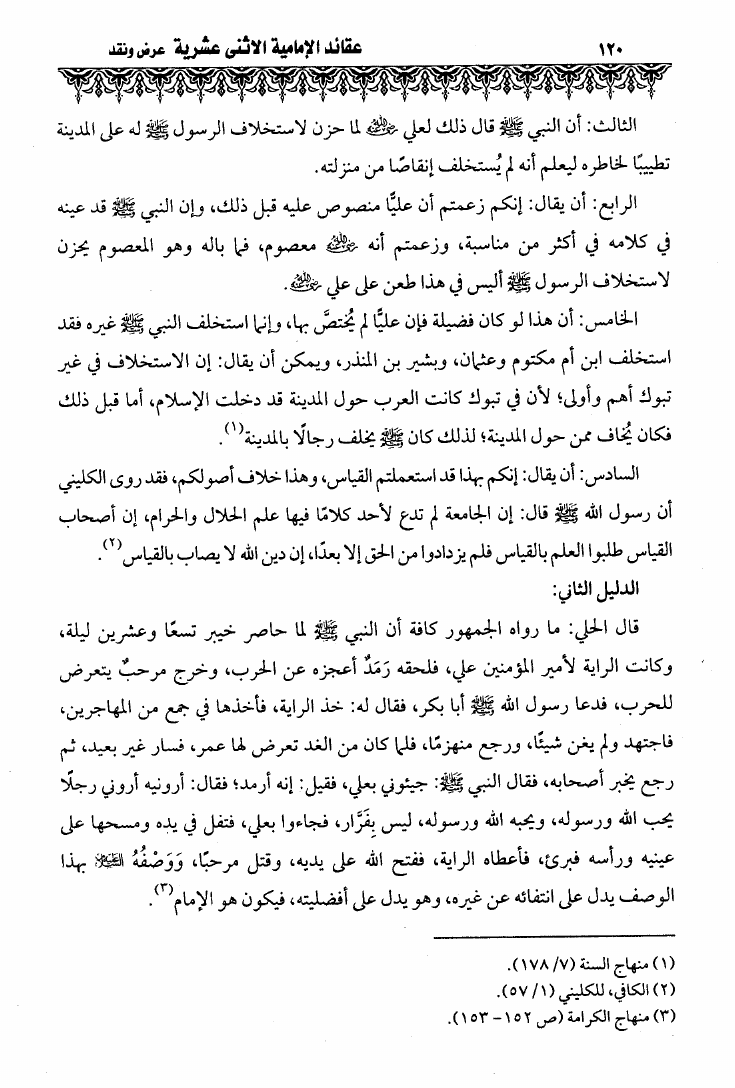 ١٢٠
عقائد الإمامية الاثنى عشرية عرض ونقد
الثالث: أن النبي ﷺ قال ذلك لعلي رضي الله عنه لما حزن لاستخلاف الرسول ﷺ له على المدينة
تطييبًا لخاطره ليعلم أنه لم يُستخلف إنقاصًا من منزلته.
الرابع: أن يقال: إنكم زعمتم أن عليًّا منصوص عليه قبل ذلك، وإن النبي ﷺ قد عينه
في كلامه في أكثر من مناسبة، وزعمتم أنه رضي الله عنه معصوم، فما باله وهو المعصوم يحزن
لاستخلاف الرسول ﷺ أليس في هذا طعن على علي رضي الله عنه.
الخامس: أن هذا لو كان فضيلة فإن عليًّا لم يُختصَّ بها، وإنما استخلف النبي ﷺ غيره فقد
استخلف ابن أم مكتوم وعثمان، وبشير بن المنذر، ويمكن أن يقال: إن الاستخلاف في غير
تبوك أهم وأولى؛ لأن في تبوك كانت العرب حول المدينة قد دخلت الإسلام، أما قبل ذلك
فكان يُخاف ممن حول المدينة؛ لذلك كان ﷺ يخلف رجالًا بالمدينة(١).
السادس: أن يقال: إنكم بهذا قد استعملتم القياس، وهذا خلاف أصولكم، فقد روى الكليني
أن رسول الله ﷺ قال: إن الجامعة لم تدع لأحد كلامًا فيها علم الحلال والحرام، إن أصحاب
القياس طلبوا العلم بالقياس فلم يزدادوا من الحق إلا بعدًا، إن دين الله لا يصاب بالقياس(٢).
الدليل الثاني:
قال الحلي: ما رواه الجمهور كافة أن النبي ﷺ لما حاصر خيبر تسعًا وعشرين ليلة،
وكانت الراية لأمير المؤمنين علي، فلحقه رَمَدٌ أعجزه عن الحرب، وخرج مرحبٌ يتعرض
للحرب، فدعا رسول الله ﷺ أبا بكر، فقال له: خذ الراية، فأخذها في جمع من المهاجرين،
فاجتهد ولم يغن شيئًا، ورجع منهزمًا، فلما كان من الغد تعرض لها عمر، فسار غير بعيد، ثم
رجع يخبر أصحابه، فقال النبي ﷺ: جيئوني بعلي، فقيل: إنه أرمد؛ فقال: أرونيه أروني رجلًا
يحب الله ورسوله، ويحبه الله ورسوله، ليس بِفَرَّار، فجاءوا بعلي، فتفل في يده ومسحها على
عينيه ورأسه فبرئ، فأعطاه الراية، ففتح الله على يديه، وقتل مرحبًا، وَوَصْفُهُ عليه السلام بهذا
الوصف يدل على انتفائه عن غيره، وهو يدل على أفضليته، فيكون هو الإمام(٣).
(١) منهاج السنة (٧/ ١٧٨).
(٢) الكافي، للكليني (١/ ٥٧).
(٣) منهاج الكرامة (ص ١٥٢- ١٥٣).